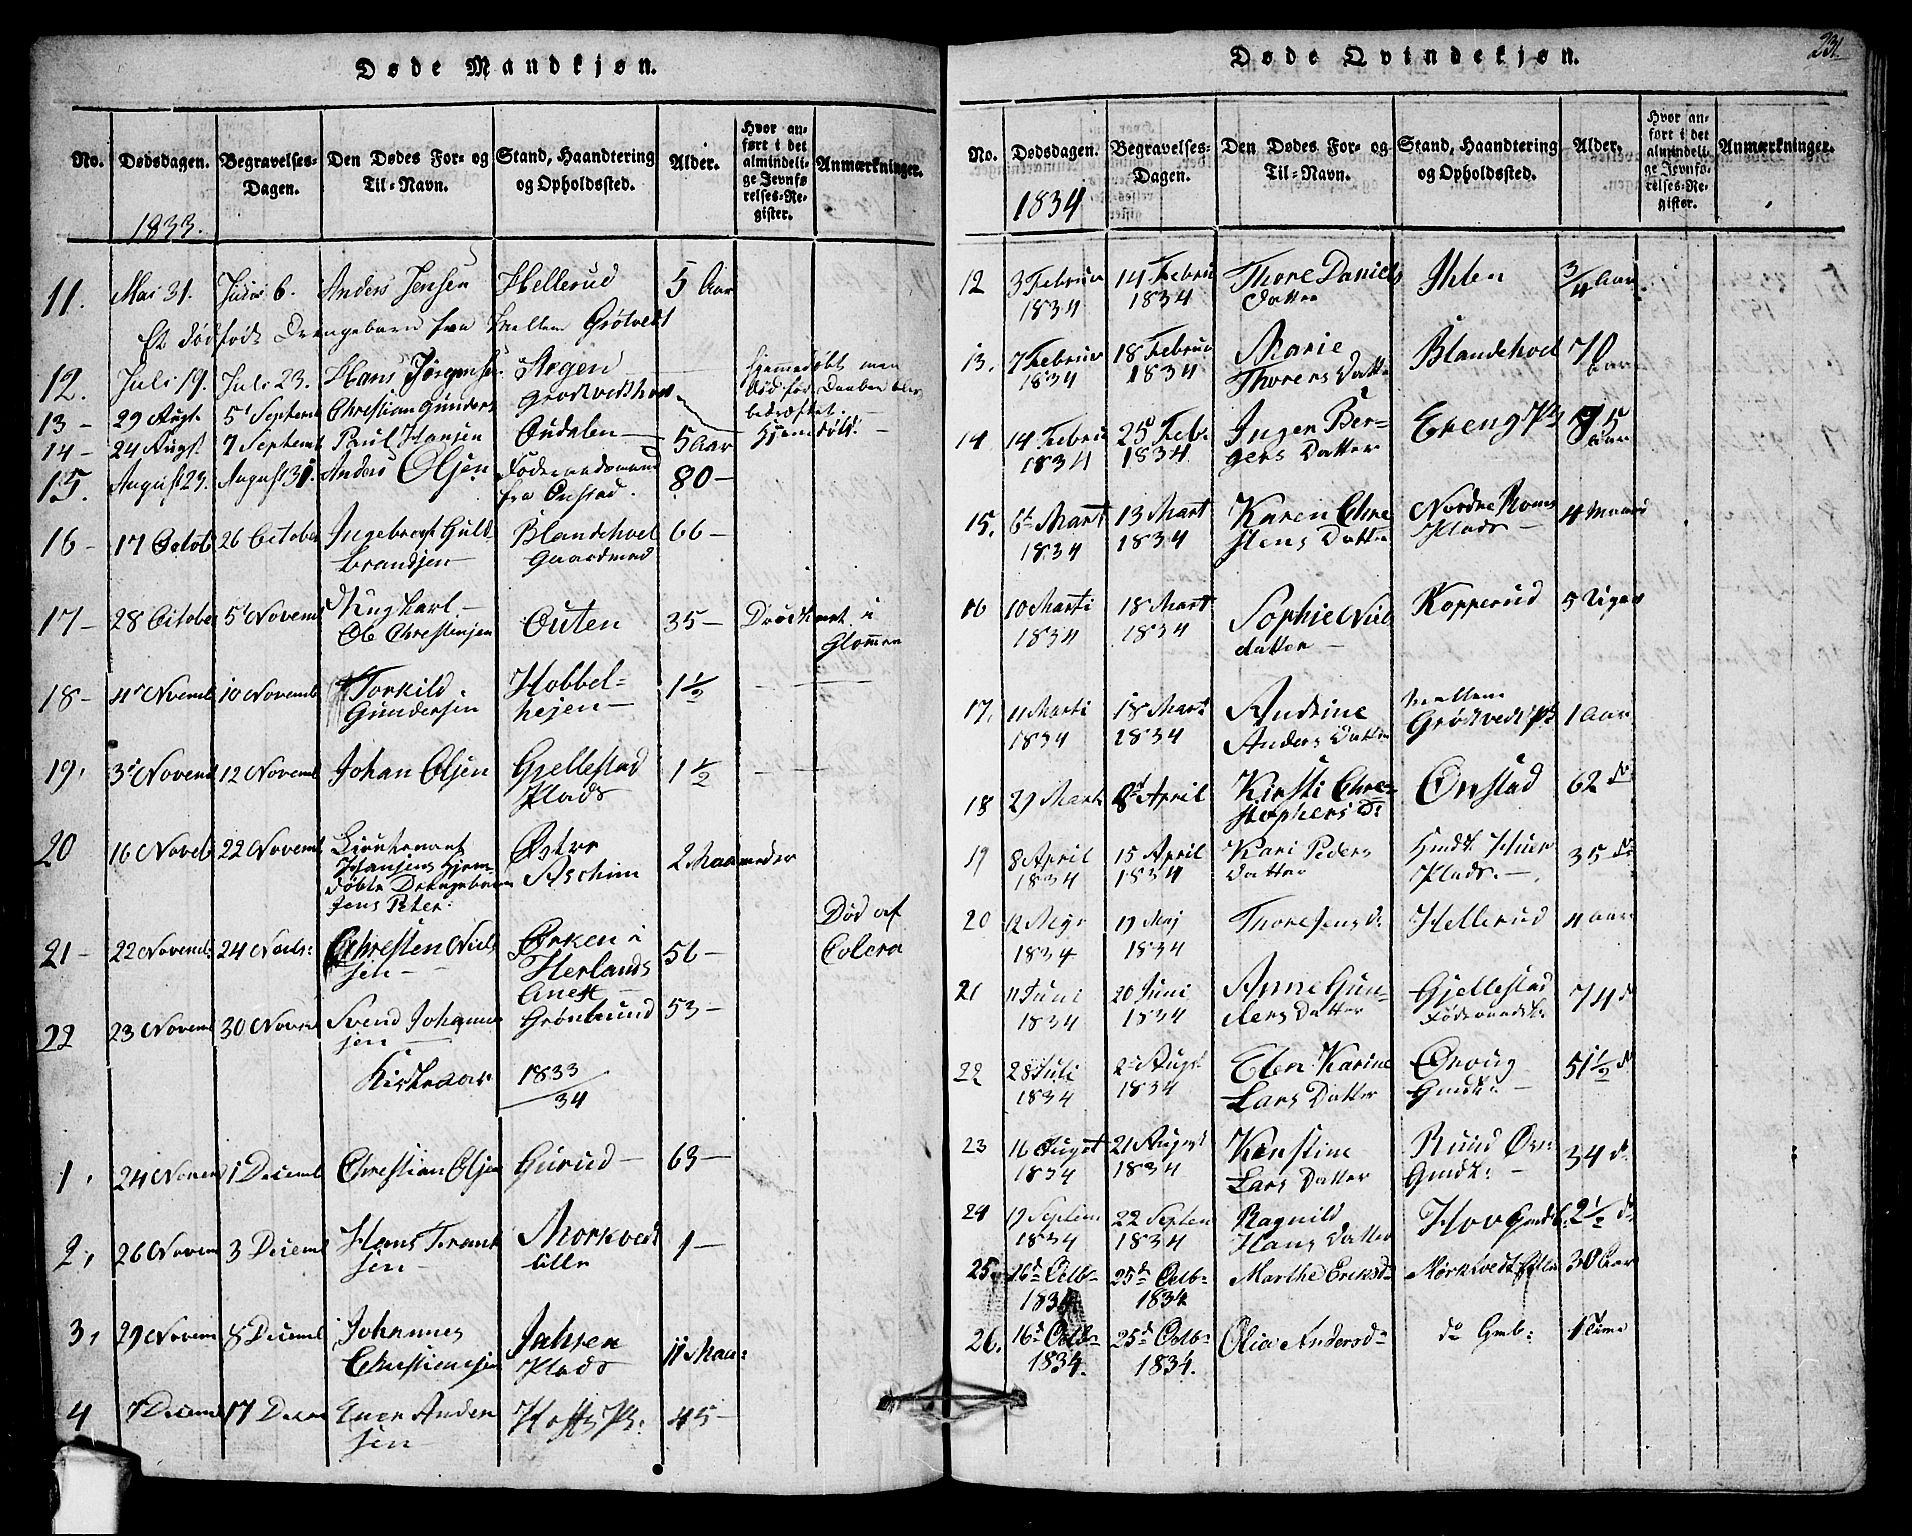 Døde Mandkjøn.
No. Dødsdagen. Begravelses-Dagen. Den Dødes For- og Til-Navn. Stand, Haandtering og Opholdssted. Alder. Hvor anført i det almindelige Jevnførelses-Register. Anmærkninger.
1833.
11. Mai 31. Juni 6. Anders Jensen Hellerud 5 Aar
Et dødfødt Drengebarn fra Mellem Grötvedt
12. Juli 19. Juli 23. Hans Jörgensen
13 - 29 Augt 5t Septemb Christian Gunders
14 - 24 Augst 7 Septemb Poul Hansen Oudalen 5 Aar
15. August 23. August 31. Anders Olsen
fra Onstad. 80 -
16 - 17 Octob 26 October Ingebret Guld
brandsen Blandehoel
Gaardmand 66 -
17 - 28 October 5t Novemb Ungkarl -
Ole Christensen Outen 35 - Drucknet i
Glommen
18 - 4 Novemb 10 Novemb Torkild
Gundersen Hobbel-
hejen - 1 1/2
19, 3 Novemb 12 Novemb Johan Olsen Gjellestad
Plads 1 1/2
20 16 Novemb 22 Novemb Lieutenant
Hansens Hjem-
døbte Drengebarn
Jens Peter. Østre
Aschim 2 Maaneder
21 - 22 Novemb 24 Novbr: Christen Niels
sen - Ørken i
Herlands
Anex 56 - Død af
Colera
22 23 Novemb 30 Novem Svend Johannes
sen - Grönlund 53 -
Kirkeaar 1833/34
1, 24 Novem 1 Decemb Christian Olsen Gurud - 63 -
2, 26 Novem 3 Decemb Hans Frant
sen - Morkvedt
lille 1 -
3, 29 Novem 8 Decemb Johannes
Christiansen Jahren
Plads 11 Maa:
4 7 Decemb 17 Decem Even Ander
sen - Hoffs Pl: 45 -
Døde Qvindekjøn.
231
No. Dødsdagen. Begravelses-Dagen. Den Dødes For- og Til-Navn. Stand, Haandtering og Opholdssted. Alder. Hvor anført i det almindelige Jevnførelses-Register. Anmærkninger.
1834
12 3 Februar
1834 14 Februar
1834 Thore Daniels
Datter Ihlen 3/4 Aar.
13. 7 Februar
1834 18 Februar
1834 Marie
Thorers Datter Blandehoel 70
Aar
14 14 Febru
1834 25 Feb.
1834 Ingen Ber-
gers Datter 75
Aar
15. 6 Mart
1834 13 Mart
1834 Karen Chre
stens Datter Nordre
Plads - 4 Maand
16 10 Marti
1834 18 Mart
1834 Sophie Niels
datter - Kopperud 5 Uger
17. 11 Marti
1834 18 Marti
1834 Andrine
Anders Datter Mellem
Grödtvedt Pl 1 Aar
18 29 Mart 8d April Kirsti Chre-
stophers D: Onstad 62 do
19 8 April
1834 15 April
1834 Kari Peders
Datter Plads. - 35 do
20 12 Mej
1834 19 Maj
1834 Thore Jens d: Hellerud 4 Aar
21 11 Juni
1834 20 Juni
1834 Anne Gun-
ders Datter Gjellestad 74 d
22 28 Juli
1834 2 Augs
1834 Elen Karine
Lars Datter 51 1/2 d
23 16 Augst
1834 21 August
1834 Kirstine
Lars Datter Ruud
Gmdk: - 34 d
24 19 Septem
1834 22 Septem
1834 Ragnild
Hans Datter Hov 2 1/2 d
25. 16d Octb-
1834 25d Octb-
1834 Marthe Eriksd: Mørkvedt Lille 30 Aar
26. 16d Octb-
1834. 25d Octb-
1834. Olia Andersd: do Gmb: 1 Time